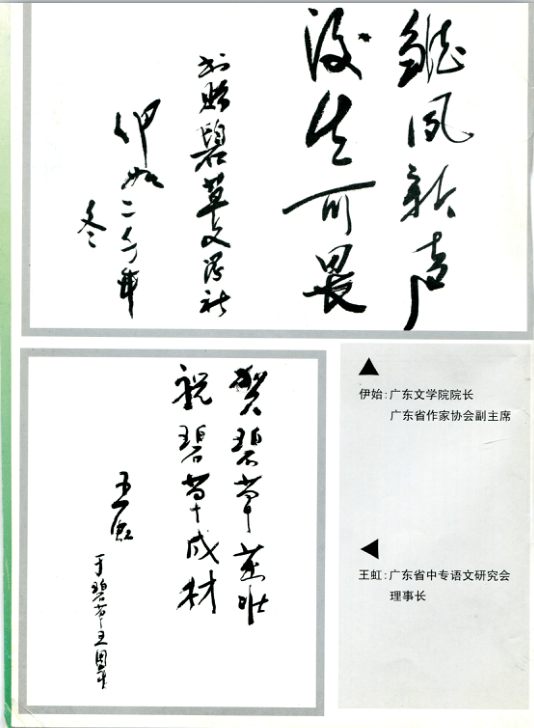 雏凤新声
后生可畏
书赠碧草文学社
伊始二〇〇〇年
冬
贺碧草茁壮
祝碧草成材
王虹
于碧草五周年
伊始:广东文学院院长
广东省作家协会副主席
王虹:广东省中专语文研究会
理事长